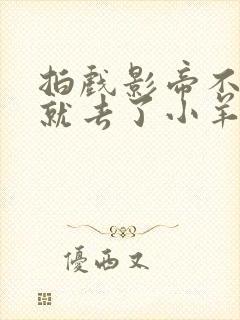 拍戏影帝不
就去了小羊
優西又